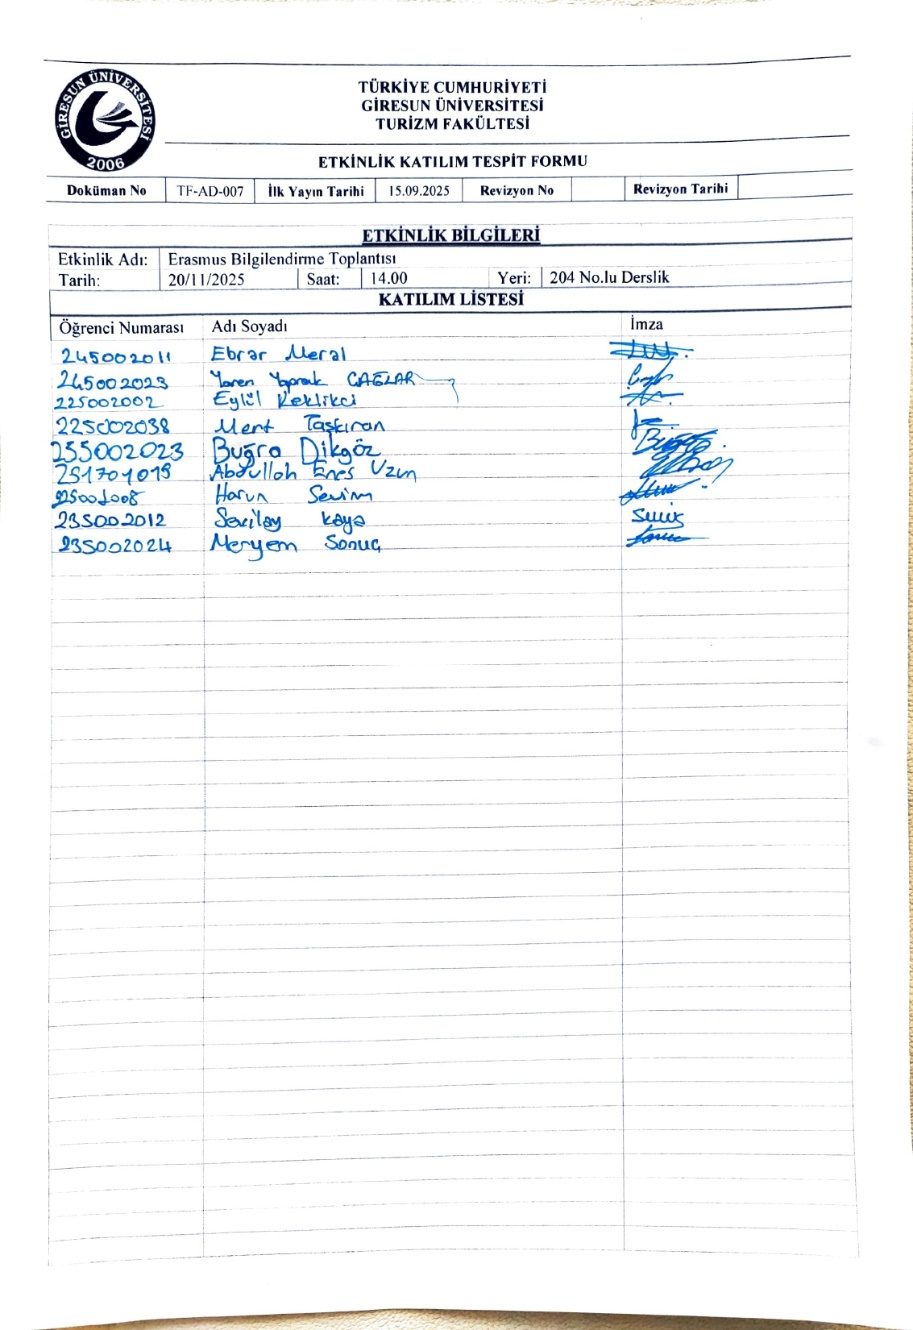 GİRESUN ÜNİVERSİTESİ
2006
TÜRKİYE CUMHURİYETİ
GİRESUN ÜNİVERSİTESİ
TURİZM FAKÜLTESİ
ETKİNLİK KATILIM TESPİT FORMU
Doküman No TF-AD-007 İlk Yayın Tarihi 15.09.2025 Revizyon No Revizyon Tarihi
ETKİNLİK BİLGİLERİ
Etkinlik Adı: Erasmus Bilgilendirme Toplantısı
Tarih: 20/11/2025 Saat: 14.00 Yeri: 204 No.lu Derslik
KATILIM LİSTESİ
Öğrenci Numarası Adı Soyadı İmza
245002011 Ebrar Meral
245002023 Yaren Yaprak ÇAĞLAR
225002002 Eylül Keklikci
225002038 Mert Taşkıran
255002023 Buğra Dikgöz Buğra
251701019 Abdullah Enes Uzun
Harun Sevim
235002012 Sevilay Kaya
235002024 Meryem Sonuç